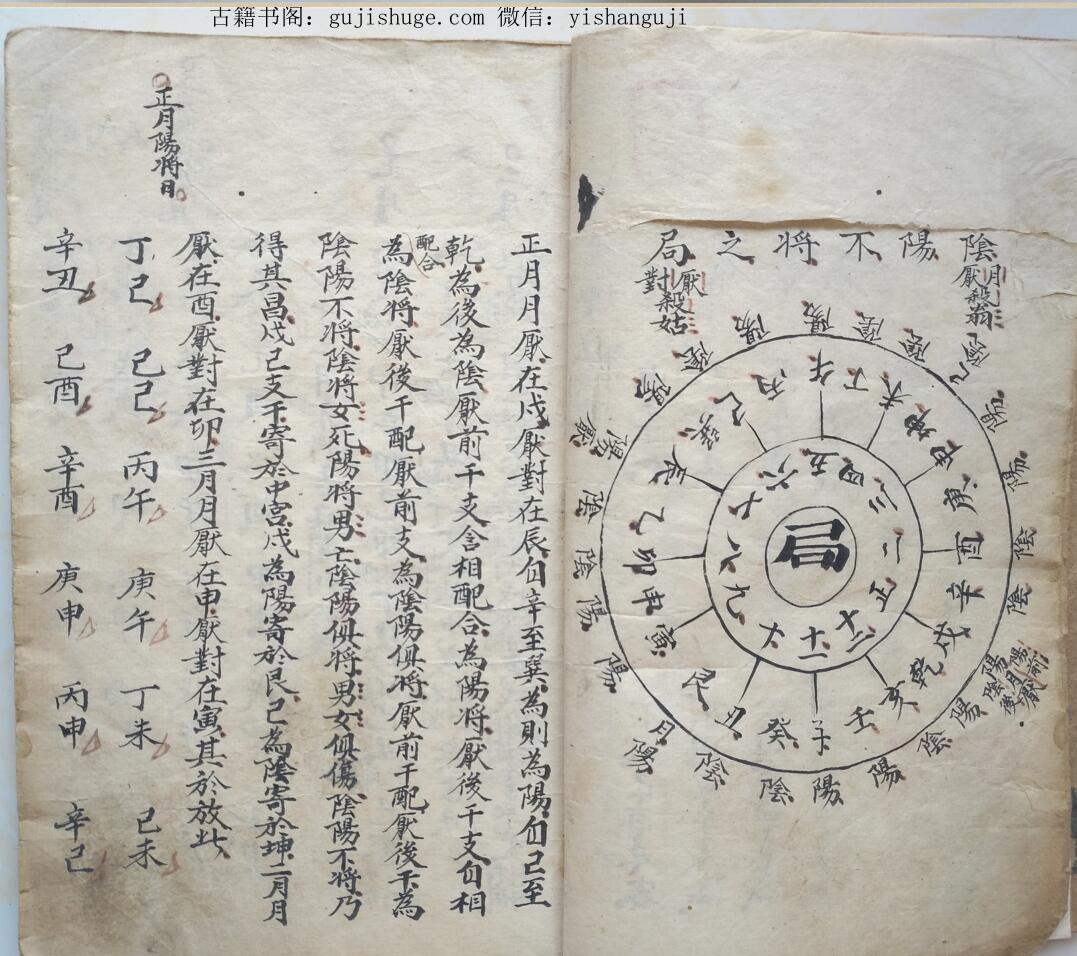 古籍书阁：gujishuge.com 微信：yishanguji
陰陽不将之局
月厭殺翁
厭對殺姑
局
正
二
三
四
五
六
七
八
九
十
十一
十二
午
丁
未
坤
申
庚
酉
辛
戌
乾
亥
壬
子
癸
丑
艮
寅
甲
卯
乙
辰
巽
巳
丙
正月月厭在戌厭對在辰自辛至巽為則為陽自己至
乾為後為陰厭前干支含相配合為陽将厭後干支自相
配合
為陰将厭後干配厭前支為陰陽俱将厭前干配厭後干為
陰陽不将陰将女死陽将男亡陰陽俱将男女俱傷陰陽不将乃
得其昌戊己支干寄於中宮戊為陽寄於艮己為陰寄於坤二月月
厭在酉厭對在卯三月月厭在申厭對在寅其於放此
正月陽将日
丁巳 己巳 丙午 庚午 丁未 己未
辛丑 己酉 辛酉 庚申 丙申 辛巳